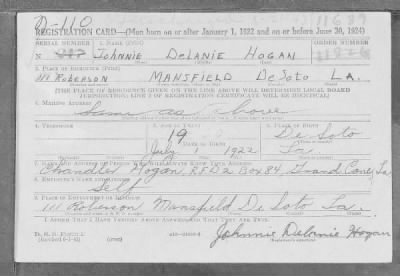 D-110
11689
REGISTRATION CARD—(Men born on or after January 1, 1922 and on or before June 30, 1924)
SERIAL NUMBER 1. NAME (Print) ORDER NUMBER
N JOHNNIE DELANIE HOGAN
2. PLACE OF RESIDENCE (Print)
111 ROBERSON MANSFIELD DESOTO LA.
[THE PLACE OF RESIDENCE GIVEN ON THE LINE ABOVE WILL DETERMINE LOCAL BOARD
JURISDICTION; LINE 2 OF REGISTRATION CERTIFICATE WILL BE IDENTICAL]
3. MAILING ADDRESS
Same as above
4. TELEPHONE 5. AGE IN YEARS 6. PLACE OF BIRTH
19 De Soto
DATE OF BIRTH
July 1922 La.
7. NAME AND ADDRESS OF PERSON WHO WILL ALWAYS KNOW YOUR ADDRESS
Chandler Hogan, RFD 2 Box 84, Grand Cane, La
8. EMPLOYER'S NAME AND ADDRESS
Self
9. PLACE OF EMPLOYMENT OR BUSINESS
111 Roberson Mansfield De Soto La.
I AFFIRM THAT I HAVE VERIFIED ABOVE ANSWERS AND THAT THEY ARE TRUE.
D. S. S. Form 1 Johnnie Delanie Hogan
(Revised 6-9-42) (over) (Registrant's signature)